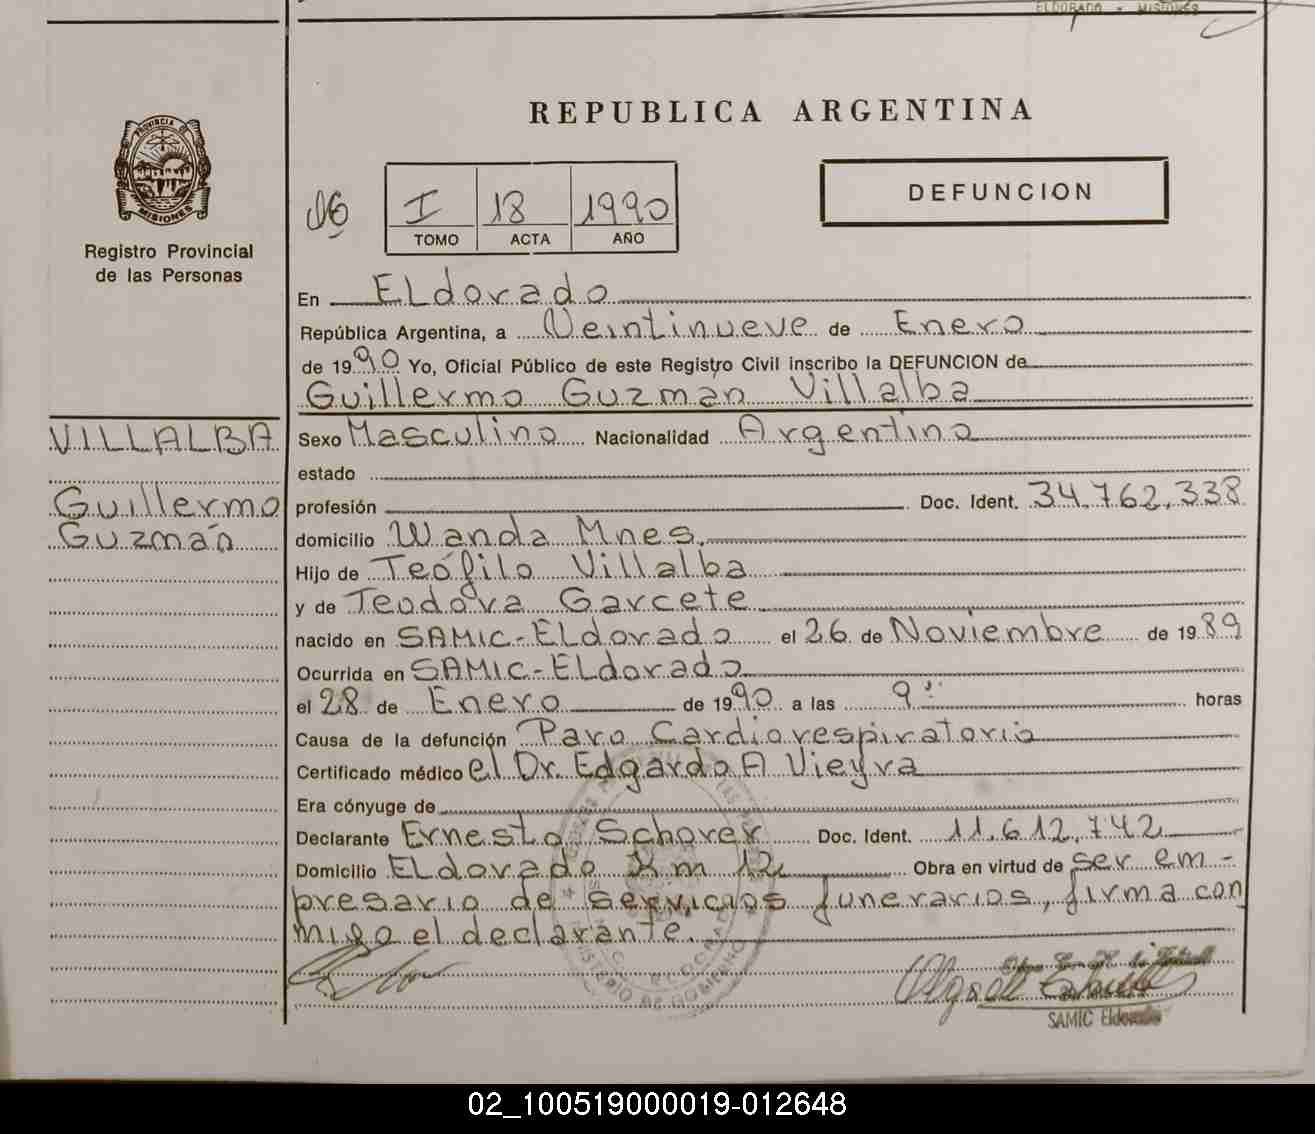 ELDORADO - MISIONES
REPUBLICA ARGENTINA
PROVINCIA
MISIONES
Registro Provincial
de las Personas
I 18 1990
TOMO ACTA AÑO
DEFUNCION
En ELdorado
República Argentina, a Veintinueve de Enero
de 1990 Yo, Oficial Público de este Registro Civil inscribo la DEFUNCION de
Guillermo Guzman Villalba
VILLALBA
Guillermo
Guzmán
Sexo Masculino Nacionalidad Argentino
estado
profesión Doc. Ident. 34.762.338
domicilio Wanda Mnes.
Hijo de Teófilo Villalba
y de Teodora Garcete
nacido en SAMIC-ELdorado el 26 de Noviembre de 1989
Ocurrida en SAMIC-ELdorado
el 28 de Enero de 1990 a las 9 horas
Causa de la defunción Paro Cardiorespiratorio
Certificado médico el Dr. Edgardo A Vieyra
Era cónyuge de
Declarante Ernesto Schorer Doc. Ident. 11.612.742
Domicilio ELdorado Km 12 Obra en virtud de ser em-
presario de servicios funerarios, firma con
migo el declarante.
MINISTERIO DE GOBIERNO
SAMIC Eldorado
02_100519000019-012648